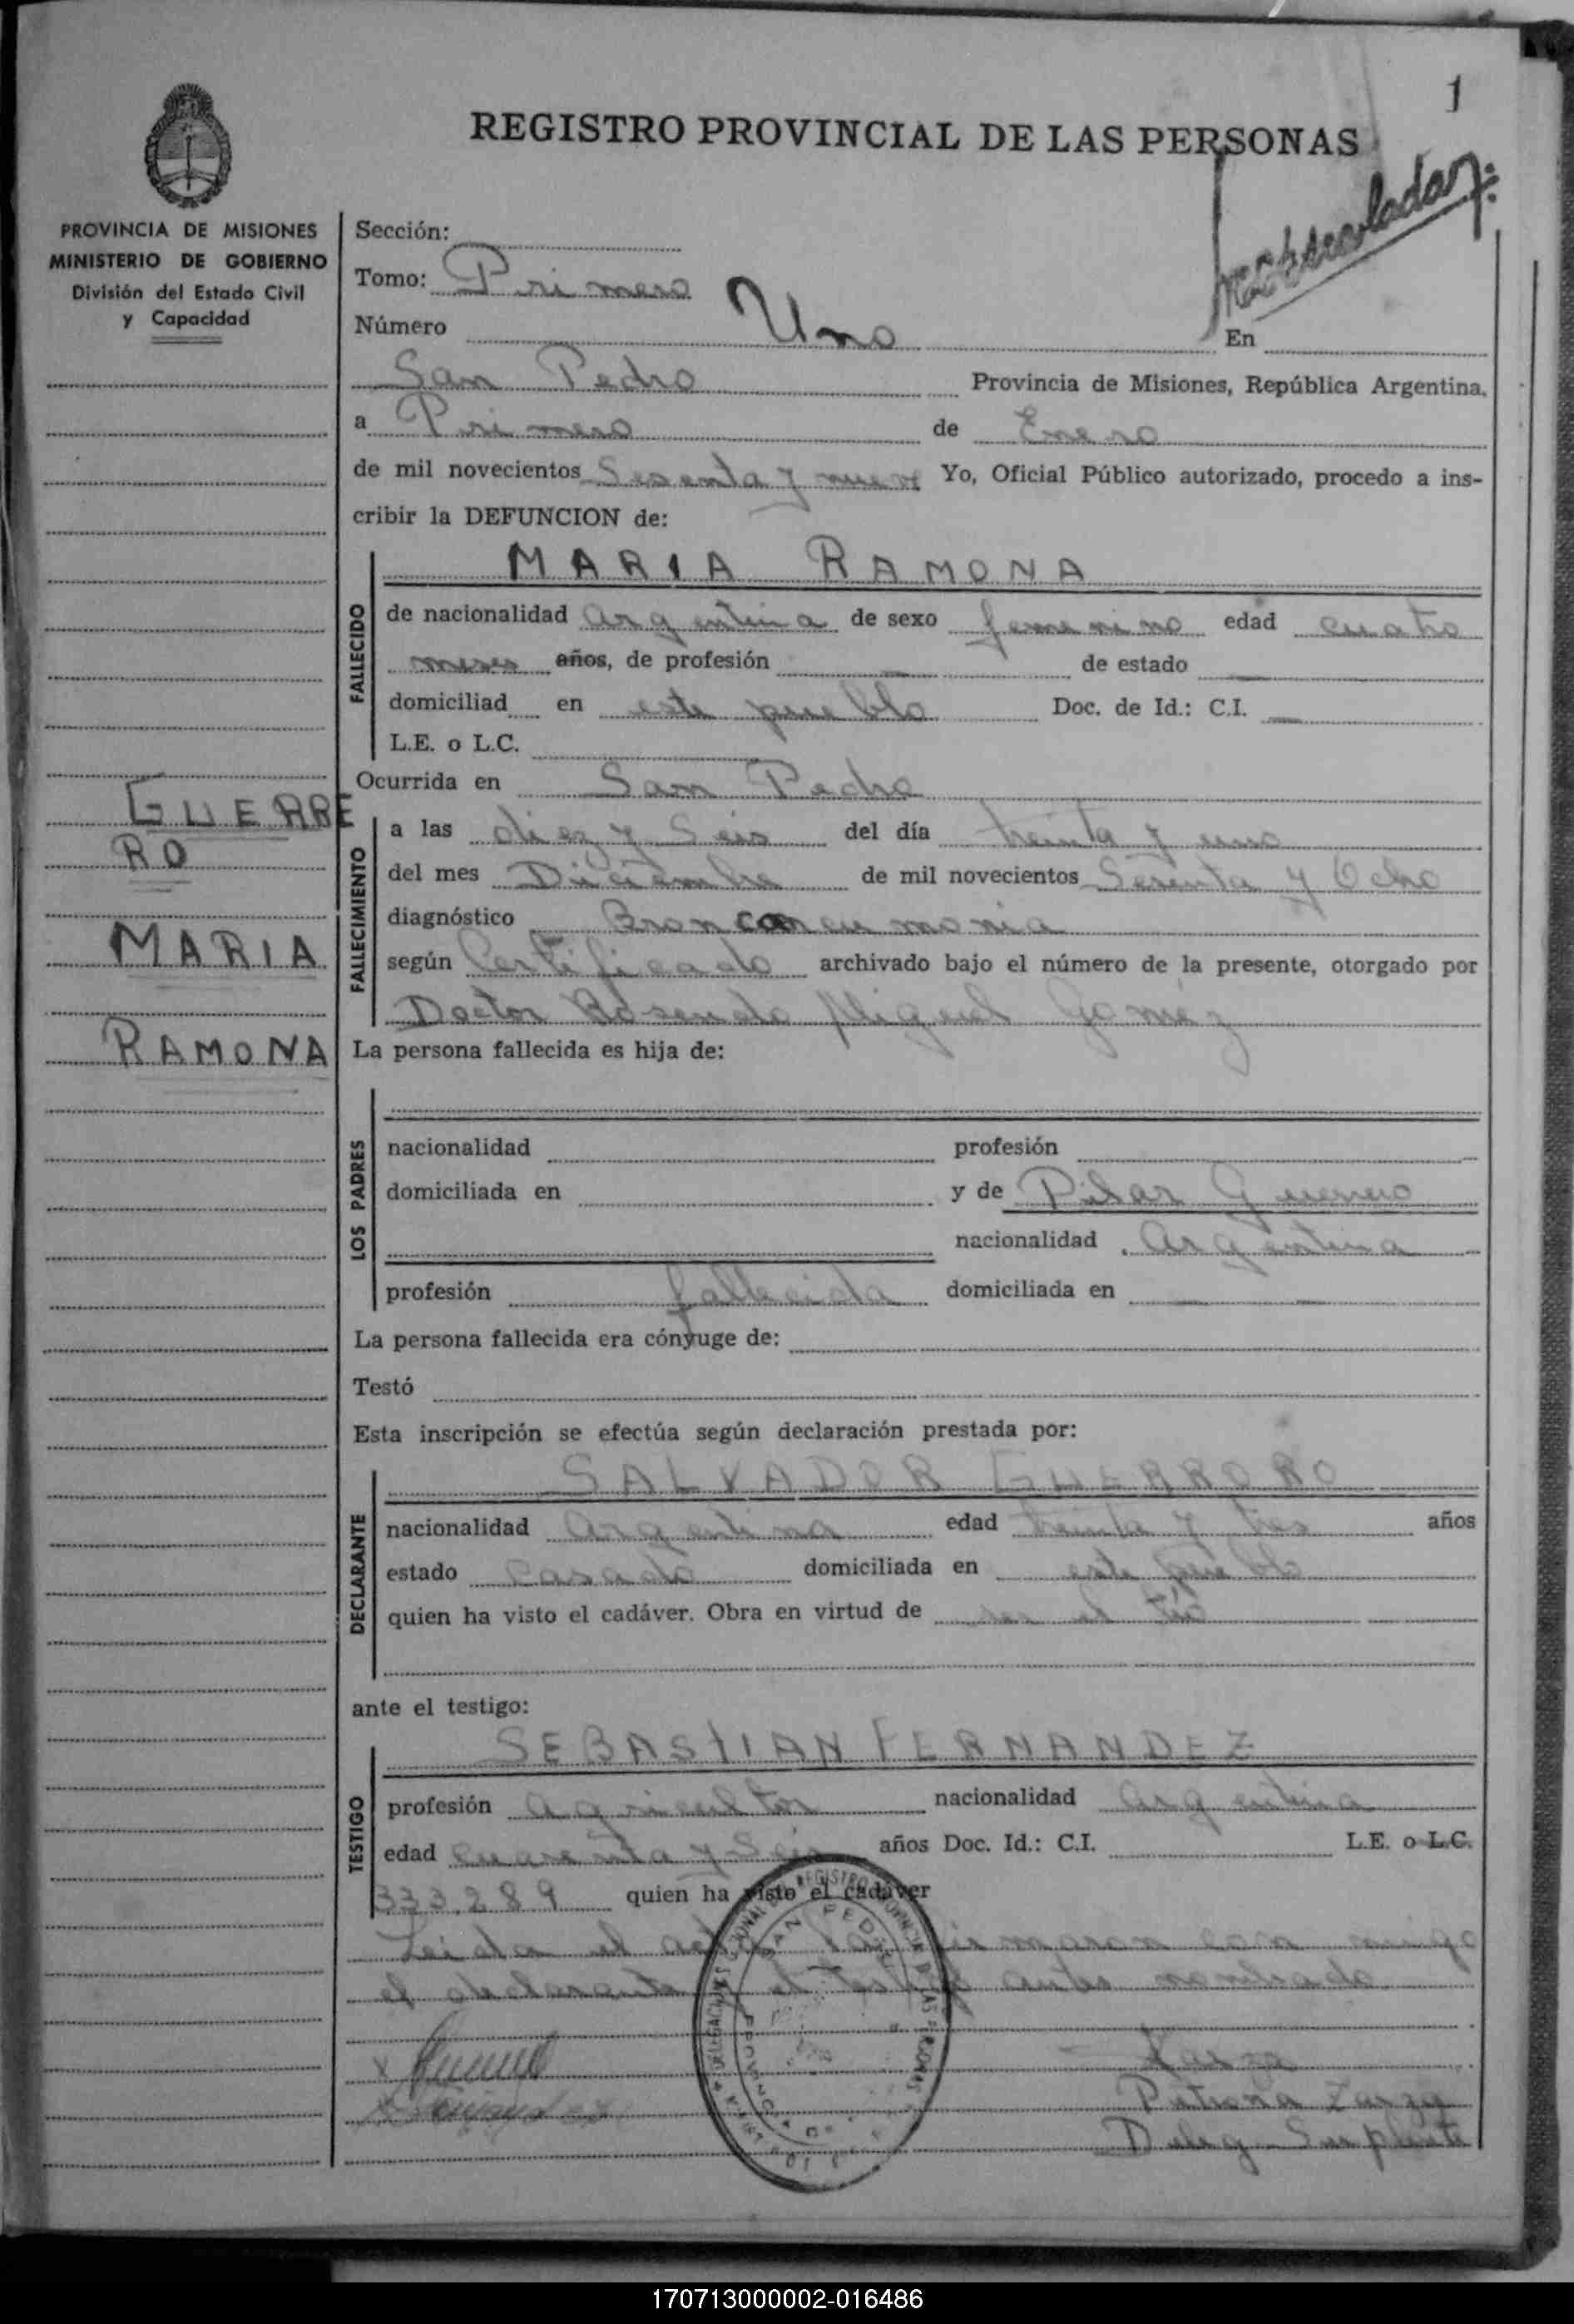 1
REGISTRO PROVINCIAL DE LAS PERSONAS
PROVINCIA DE MISIONES
MINISTERIO DE GOBIERNO
División del Estado Civil
y Capacidad
Sección:
Tomo: Primero
Número Uno En
San Pedro Provincia de Misiones, República Argentina,
a Primero de Enero
de mil novecientos Sesenta y nueve Yo, Oficial Público autorizado, procedo a ins-
cribir la DEFUNCION de:
MARIA RAMONA
FALLECIDO
de nacionalidad argentina de sexo femenino edad cuatro
meses años, de profesión — de estado —
domiciliad en este pueblo Doc. de Id.: C.I. —
L.E. o L.C.
GUERRE
RO
MARIA
RAMONA
Ocurrida en San Pedro
FALLECIMIENTO
a las diez y Seis del día treinta y uno
del mes Diciembre de mil novecientos Sesenta y Ocho
diagnóstico Bronconeumonia
según Certificado archivado bajo el número de la presente, otorgado por
Doctor Rosendo Miguel Gomez
La persona fallecida es hija de:
LOS PADRES
nacionalidad profesión
domiciliada en y de Pilar Guerrero
nacionalidad Argentina
profesión fallecida domiciliada en —
La persona fallecida era cónyuge de:
Testó
Esta inscripción se efectúa según declaración prestada por:
SALVADOR GUERRORO
DECLARANTE
nacionalidad Argentina edad treinta y tres años
estado casado domiciliada en este pueblo
quien ha visto el cadáver. Obra en virtud de ser el tio
ante el testigo:
SEBASTIAN FERNANDEZ
TESTIGO
profesión agricultor nacionalidad argentina
edad cuarenta y Seis años Doc. Id.: C.I. L.E. o L.C.
333.289 quien ha visto el cadáver
Leida el acta la firmaron con migo
el declarante y el testigo antes nombrado
Zarza
Petrona Zarza
Deleg. Suplente
170713000002-016486